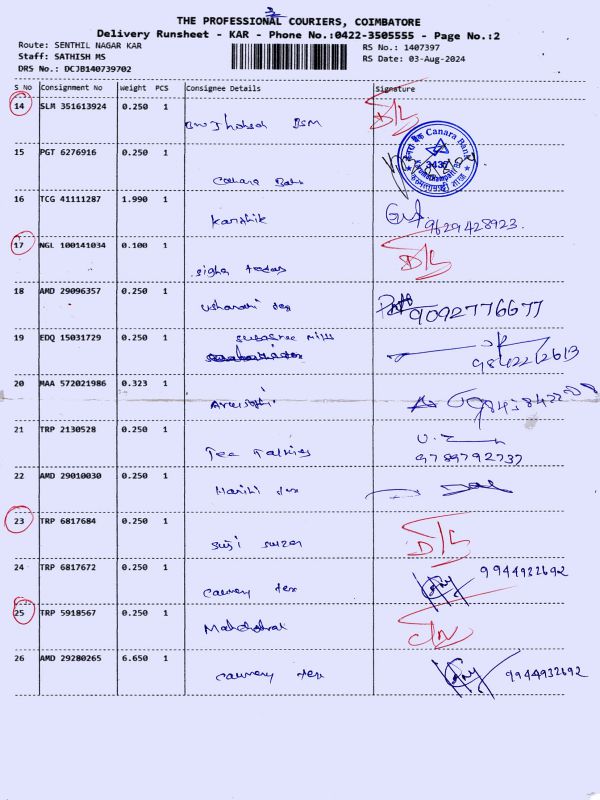 THE PROFESSIONAL COURIERS, COIMBATORE
Delivery Runsheet - KAR - Phone No.:0422-3505555 - Page No.:2
Route: SENTHIL NAGAR KAR
RS No.: 1407397
Staff: SATHISH MS
RS Date: 03-Aug-2024
DRS No.: DCJB140739702
S No Consignment No Weight PCS Consignee Details Signature
14 SLM 351613924 0.250 1 BSM D/L
15 PGT 6276916 0.250 1 Canara Bank
16 TCG 41111287 1.990 1 Karthik 9629428923.
17 NGL 100141034 0.100 1 D/L
18 AMD 29096357 0.250 1 tex 9092776677
19 EDQ 15031729 0.250 1
20 MAA 572021986 0.323 1
21 TRP 2130528 0.250 1 Tee 9789792737
22 AMD 29010030 0.250 1 tex
23 TRP 6817684 0.250 1 D/L
24 TRP 6817672 0.250 1 Cauvery tex 9944922692
25 TRP 5918567 0.250 1
26 AMD 29280265 6.650 1 Cauvery tex 9944932692